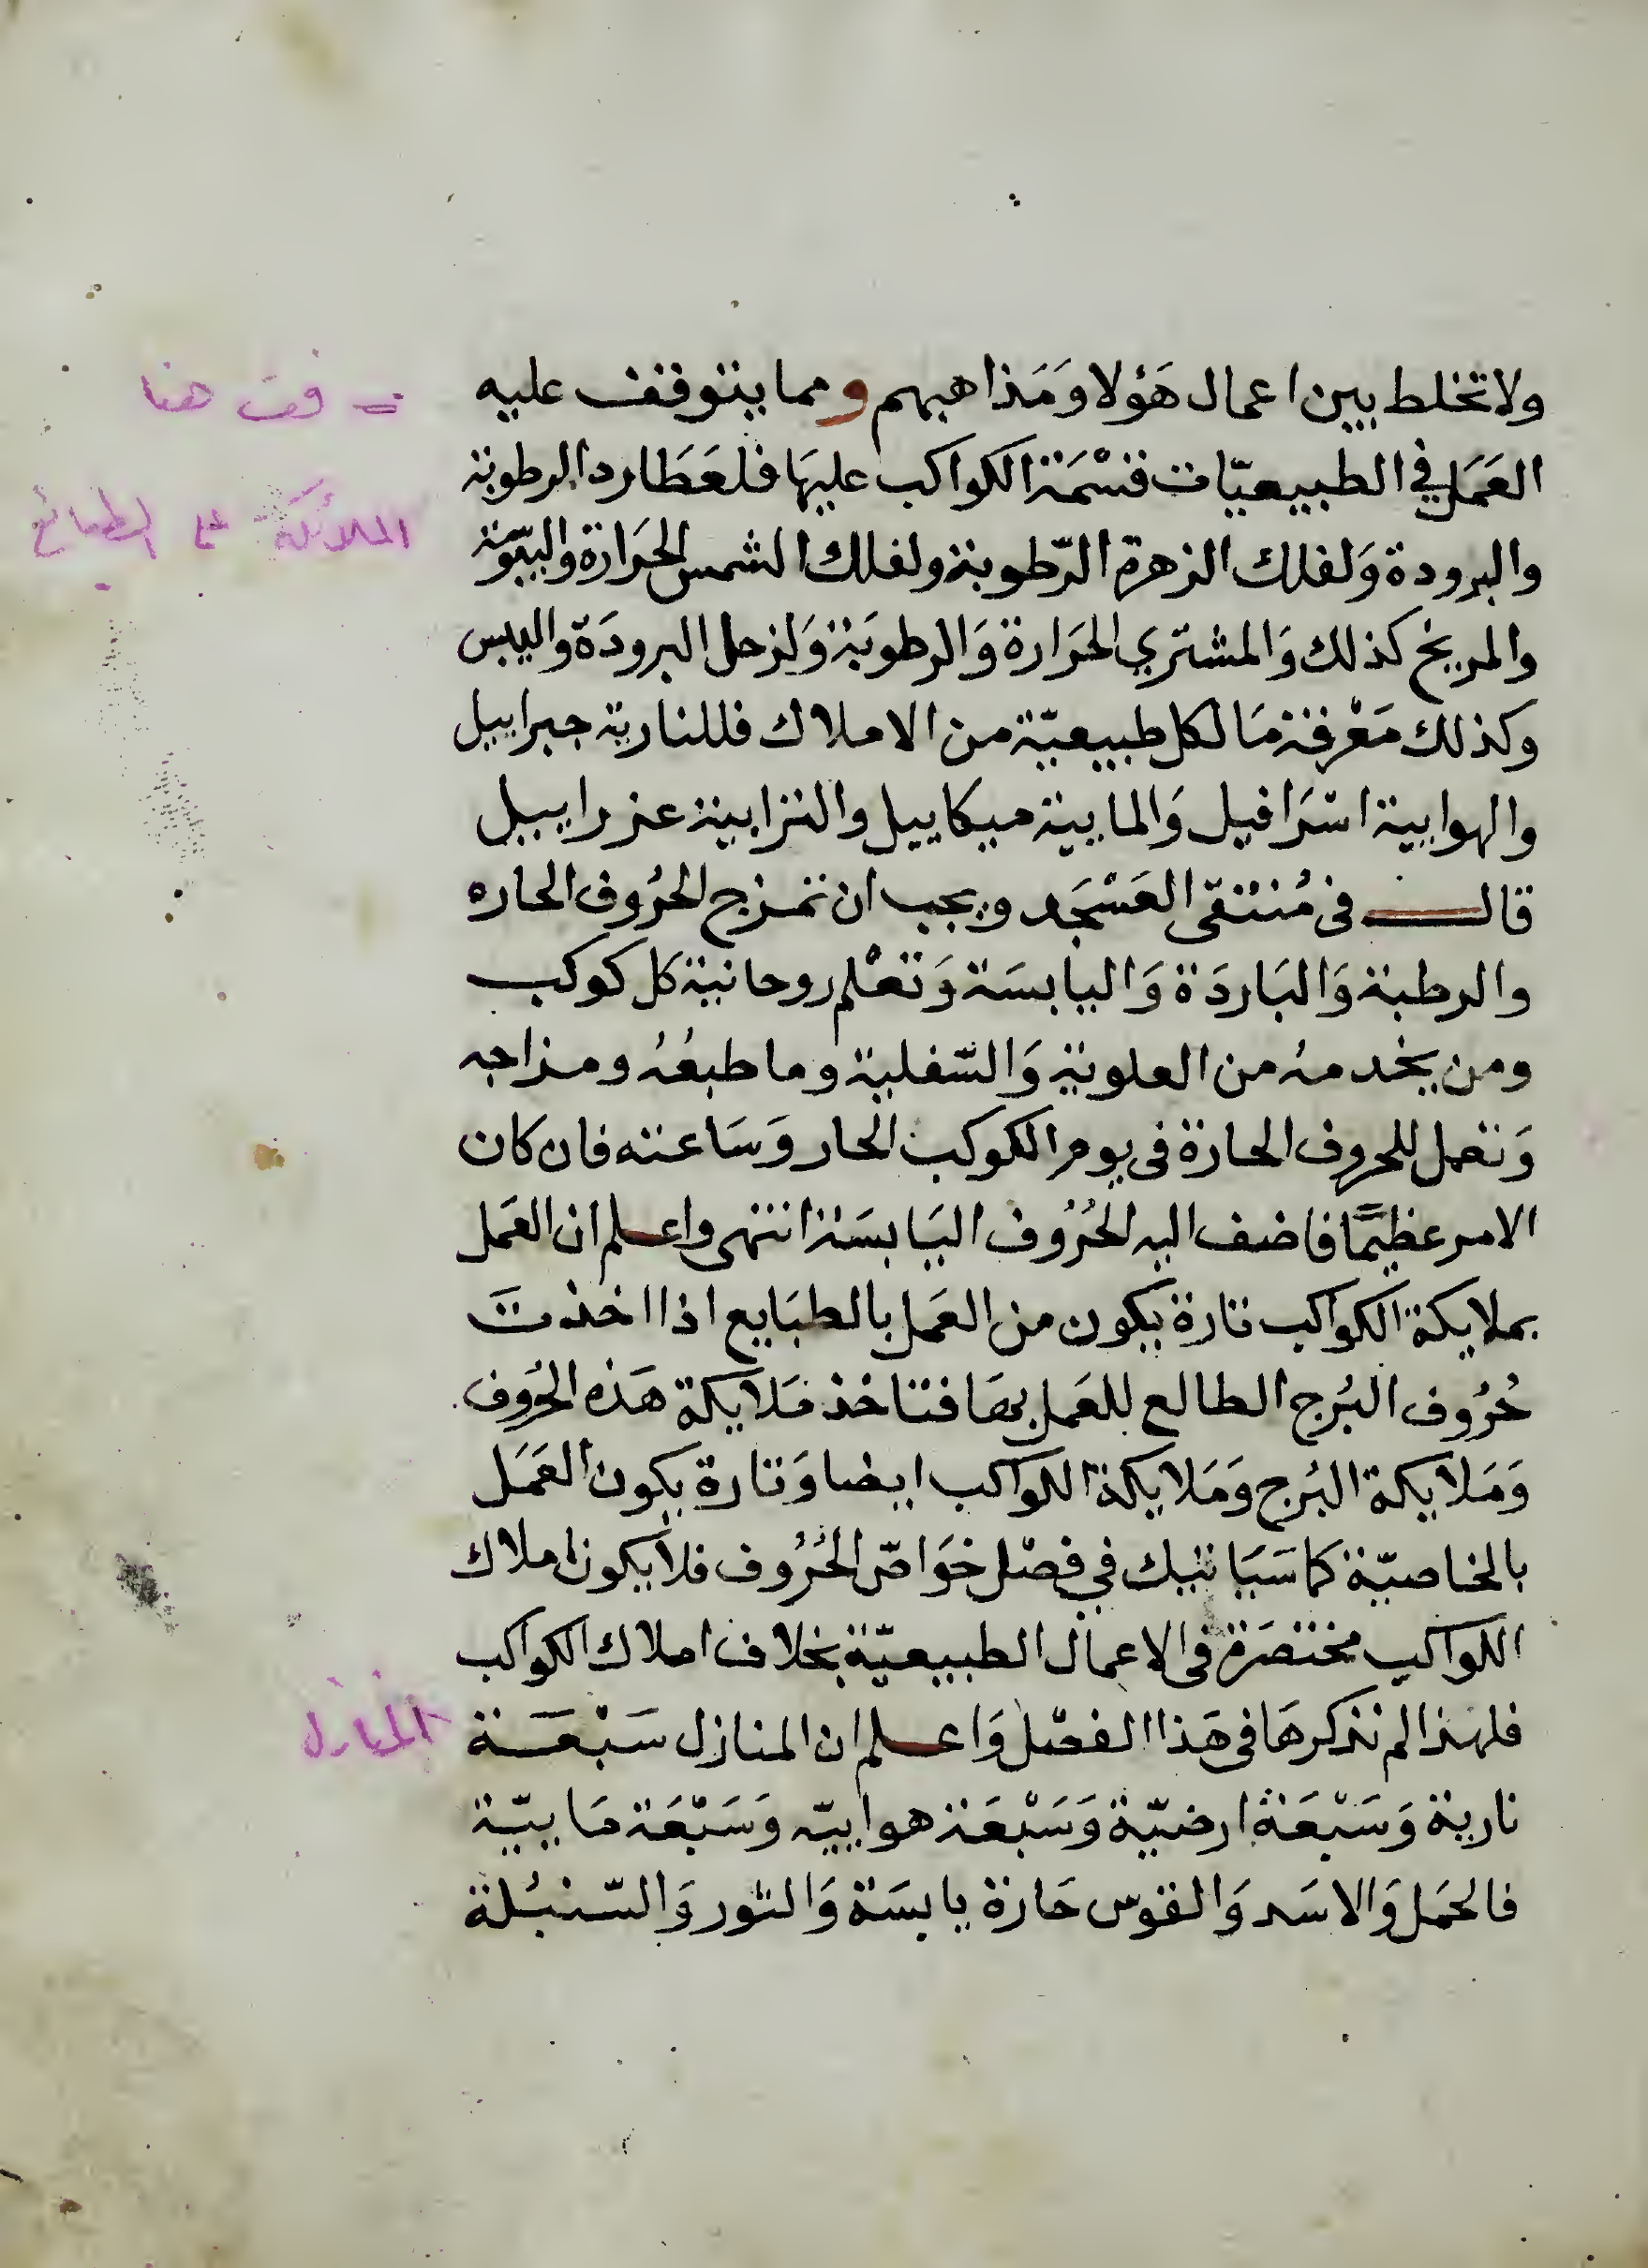 ولا تخلط بين اعمال هَؤلا وَمَذاهبهم ومما يتوقف عليه
العَمَل في الطبيعيّات قسْمَة الكواكب عليهَا فلعَطَارد الرطوبة
والبرودة وَلفلك الزهرة الرّطوبة ولفلك الشمس الحَرَارة واليبوسَة
والمريخ كذلك وَالمشتري الحَرَارة وَالرطوبَة وَلزحل البرودَة واليبس
وكذلك مَعْرفة مَا لكل طبيعيّة من الاملاك فللنارية جبراييل
والهوايية اسْرَافيل وَالمايية ميكاييل والترابية عزراييل
قالـــ في مُنتقى العَسْجَد ويجب ان تمزج الحُروف الحاره
والرطبة وَالبَاردَة وَاليابسَة وَتعْلم روحانية كل كوكب
ومن يخدمهُ من العلوية وَالسّفلية وما طبعُهُ ومزاجه
وَتعمل للحروف الحارة في يوم الكوكب الحار وَسَاعته فان كان
الامر عظيمًا فاضف اليه الحُرُوف اليَابسَة انتهى واعلم ان العَمل
بملايكة الكواكب تارة يكون من العَمل بالطبَايع اذا اخذتَ
حُرُوف البُرج الطالع للعَمل بهَا فتاخذ مَلايكة هَذه الحُروف
وَمَلايكة البُرج وَمَلايكة الكواكب ايضا وَتارة يكون العَمَل
بالخاصيّة كما سَيَاتيك في فصْل خوَاصّ الحُرُوف فلا يكون املاك
الكواكب مختصَرة في الاعمال الطبيعيّة بخلاف املاك الكواكب
فلهذا لم نذكرهَا في هَذا الفصْل وَاعلم ان المنازل سَبْعَة
نارية وَسَبْعَة ارضيّة وَسَبْعَة هواييّه وَسَبْعَة مَاييّة
فالحَمَل وَالاسَد وَالقوس حَارة يابسَة وَالثور وَالسّنبُلة
= قف هنا
الملائكة على الطبائع
المنازل